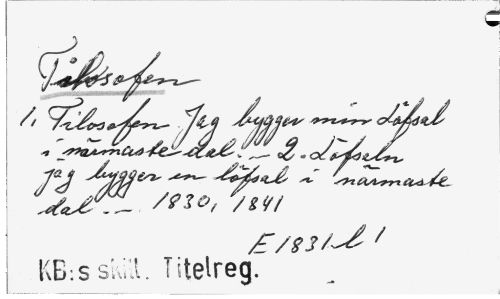 Filosofen
1, Filosofen. Jag bygger min Löfsal
i närmaste dal. – 2. Löfsaln
jag bygger en löfsal i närmaste
dal. – 1830, 1841
E 1831 l 1
KB:s skill. Titelreg.